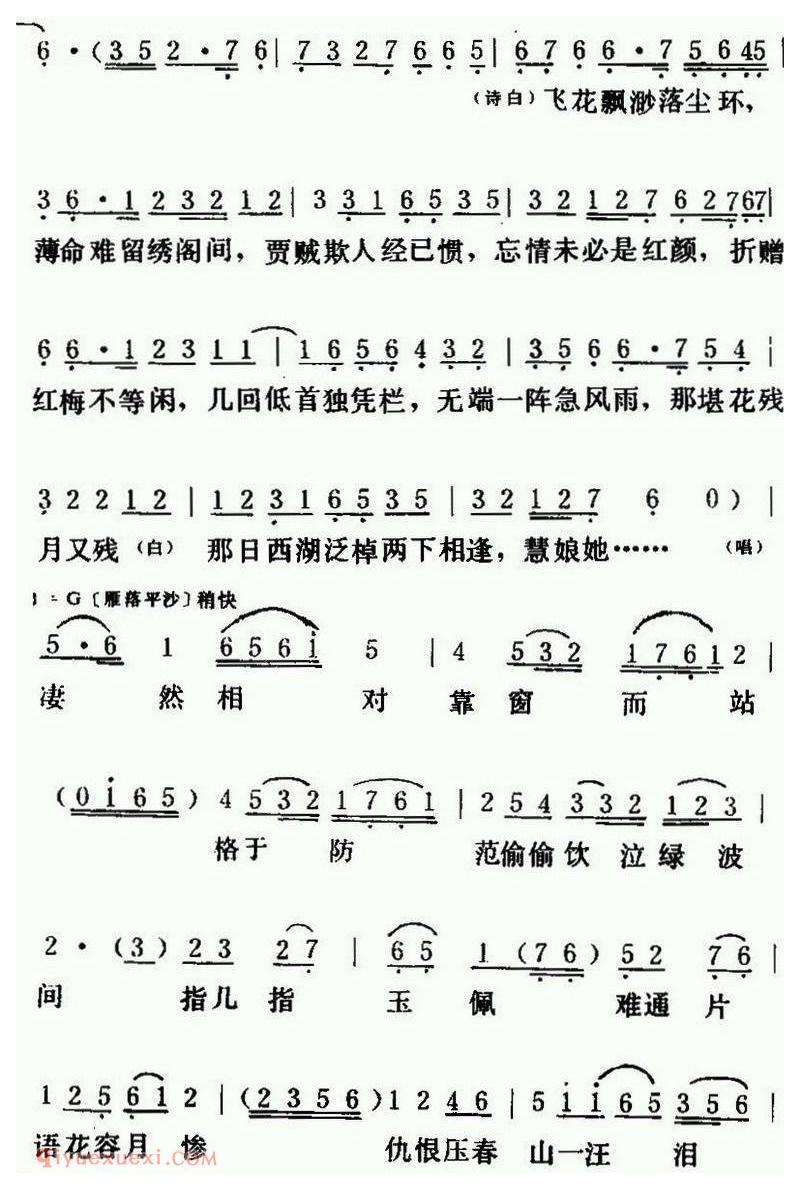 6·(3 5 2·7 6 | 7 3 2 7 6 6 5 | 6 7 6 6·7 5 6 4 5 |
(诗白)飞花飘渺落尘环，
3 6·1 2 3 2 1 2 | 3 3 1 6 5 3 5 | 3 2 1 2 7 6 2 7 6 7 |
薄命难留绣阁间，贾贼欺人经已惯，忘情未必是红颜，折赠
6 6·1 2 3 1 1 | 1 6 5 6 4 3 2 | 3 5 6 6·7 5 4 |
红梅不等闲，几回低首独凭栏，无端一阵急风雨，那堪花残
3 2 2 1 2 | 1 2 3 1 6 5 3 5 | 3 2 1 2 7 6 0) |
月又残(白)那日西湖泛棹两下相逢，慧娘她……(唱)
1=G〔雁落平沙〕稍快
5·6 1 6 5 6 i 5 | 4 5 3 2 1 7 6 1 2 |
凄然相对靠窗而站
(0 i 6 5) 4 5 3 2 1 7 6 1 | 2 5 4 3 3 2 1 2 3 |
格于防范偷偷饮泣绿波
2·(3) 2 3 2 7 | 6 5 1 (7 6) 5 2 7 6 |
间指几指玉佩难通片
1 2 5 6 1 2 | (2 3 5 6) 1 2 4 6 | 5 i i 6 5 3 5 6 |
语花容月惨仇恨压春山一汪泪
qiyuexuexi.com